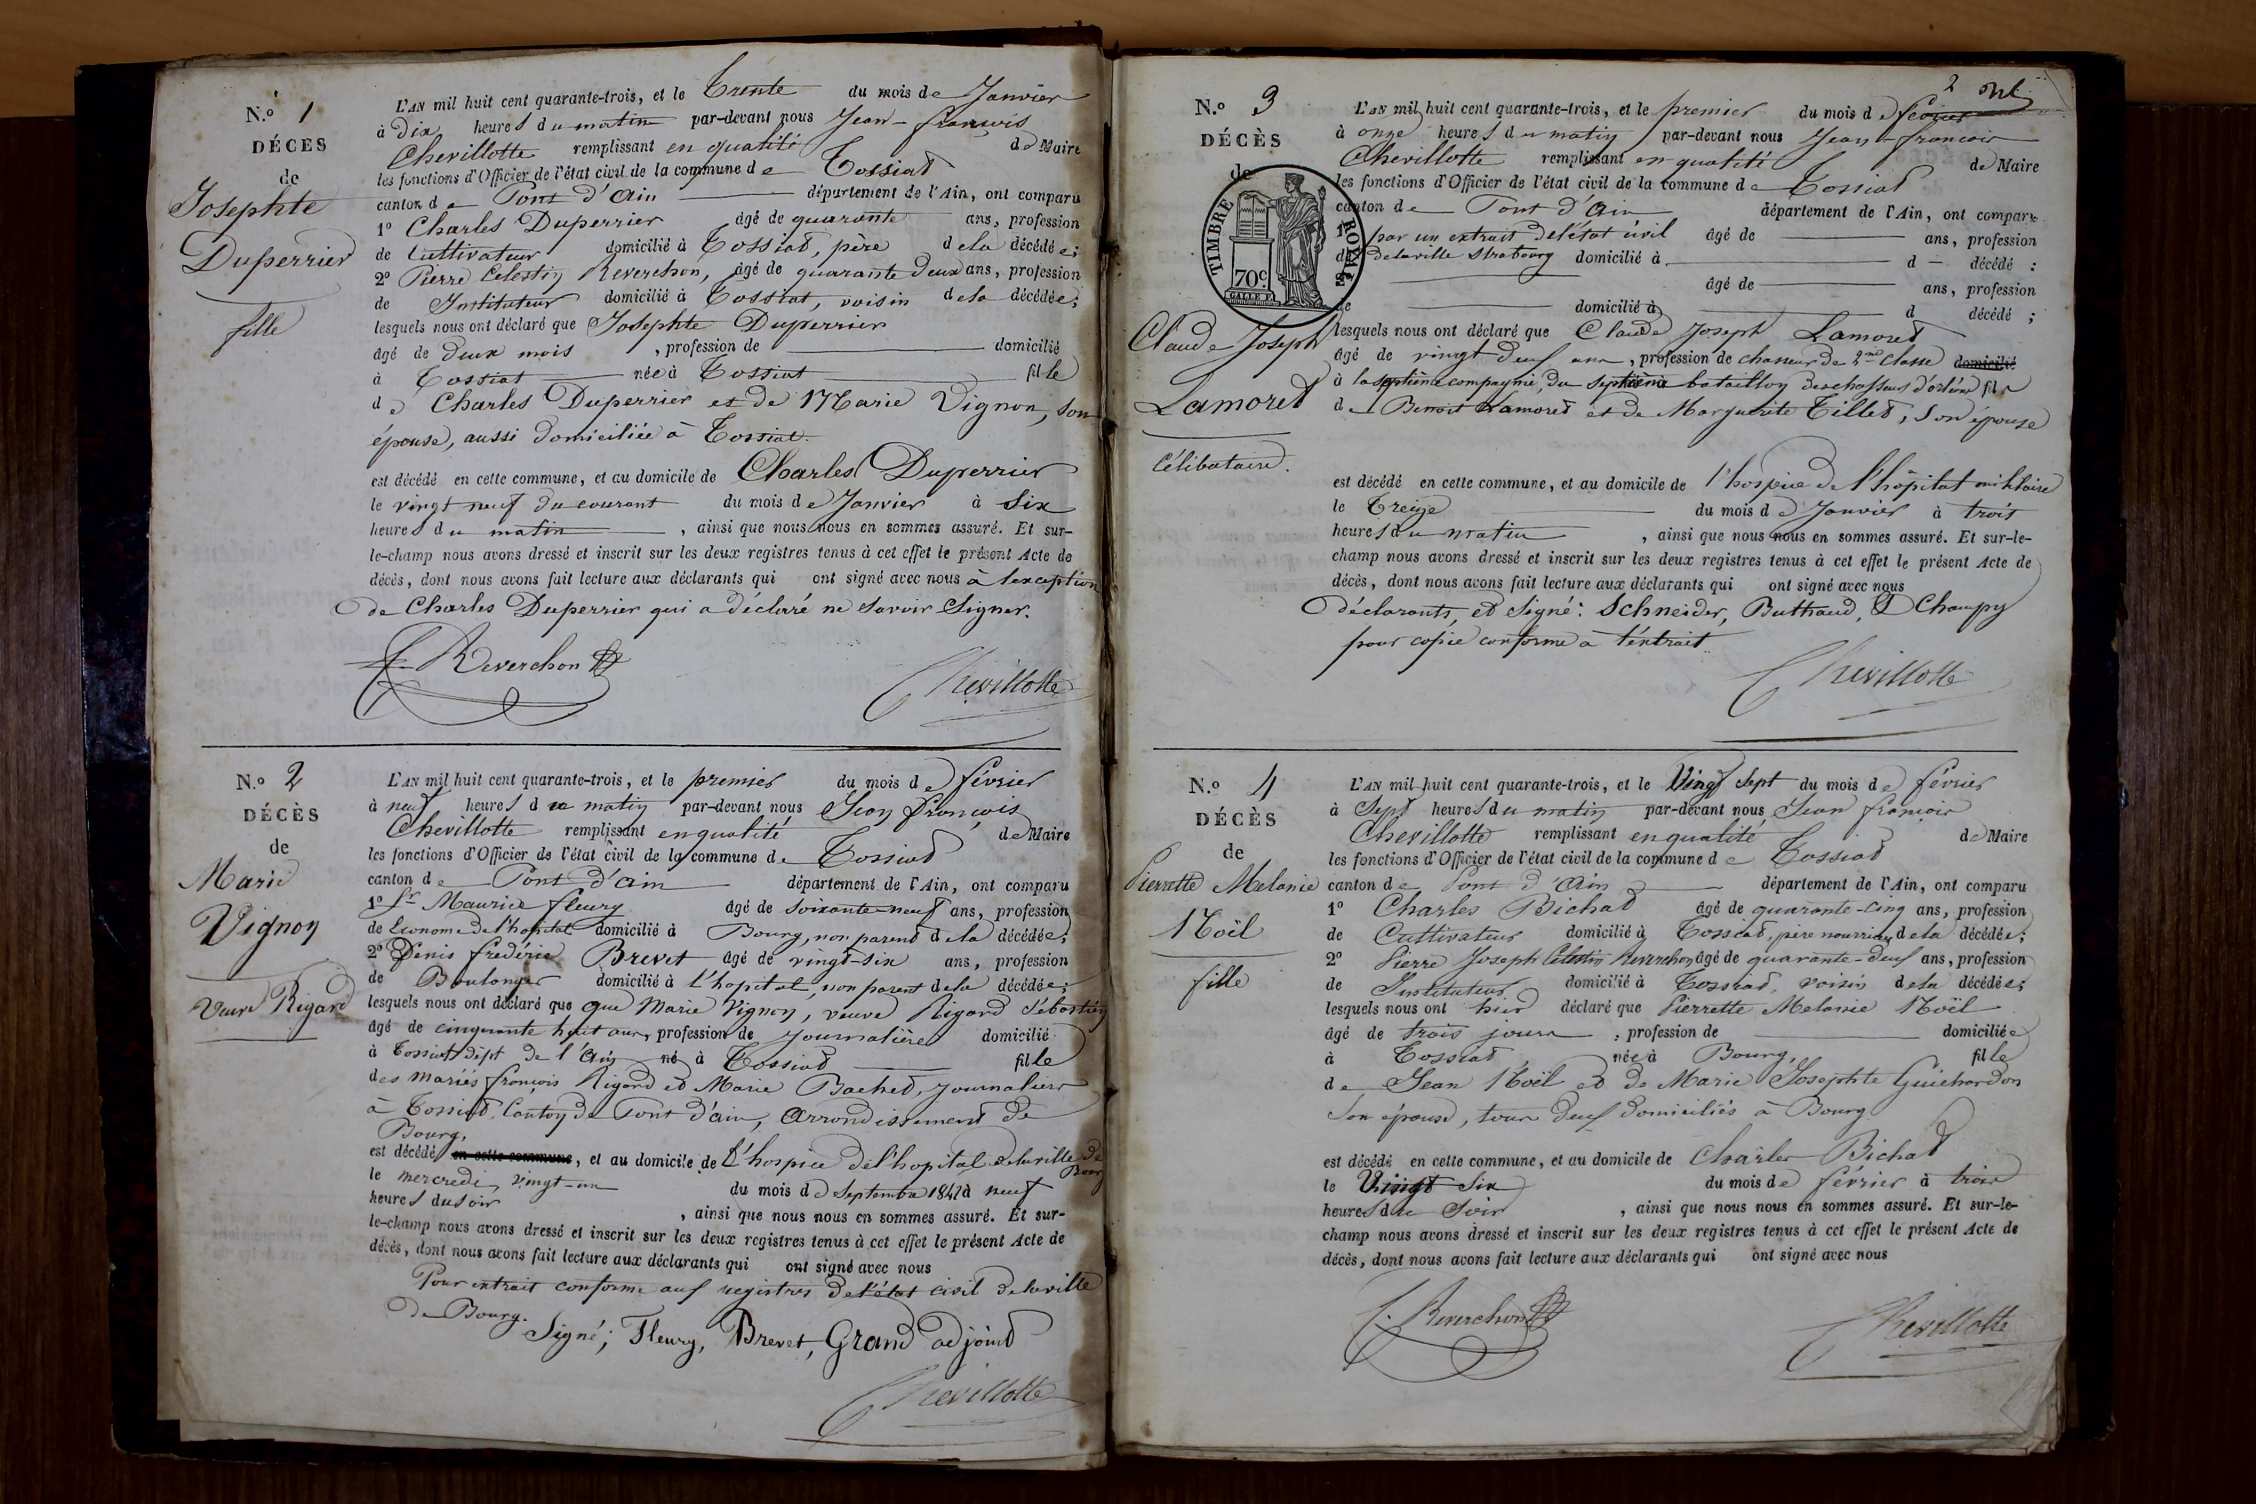 N.o 1
DÉCES
de
Josephte
Duperrier
fille
L'AN mil huit cent quarante-trois, et le Trente du mois de Janvier
à dix heures du matin par-devant nous Jean-françois
Chevillotte remplissant en qualité de Maire
les fonctions d'Officier de l'état civil de la commune de Tossiat
canton de Pont d'Ain département de l'Ain, ont comparu
1o Charles Duperrier âgé de quarante ans, profession
de Cultivateur domicilié à Tossiat, père de la décédée;
2o Pierre Celestin Reverchon, âgé de quarante deux ans, profession
de Instituteur domicilié à Tossiat, voisin de la décédée;
lesquels nous ont déclaré que Josephte Duperrier
âgé de deux mois, profession de domicilié
à Tossiat née à Tossiat fille
de Charles Duperrier et de Marie Vignon, son
épouse, aussi domiciliée à Tossiat.
est décédé en cette commune, et au domicile de Charles Duperrier
le vingt neuf du courant du mois de Janvier à six
heures du matin, ainsi que nous nous en sommes assuré. Et sur-
le-champ nous avons dressé et inscrit sur les deux registres tenus à cet effet le présent Acte de
décès, dont nous avons fait lecture aux déclarants qui ont signé avec nous à l'exception
de Charles Duperrier qui a déclaré ne savoir signer.
Reverchon
Chevillotte
N.o 2
DÉCÈS
de
Marie
Vignon
Veuve Rigard
L'AN mil huit cent quarante-trois, et le premier du mois de février
à neuf heures du matin par-devant nous Jean françois
Chevillotte remplissant en qualité de Maire
les fonctions d'Officier de l'état civil de la commune de Tossiat
canton de Pont d'Ain département de l'Ain, ont comparu
1o Sr Maurice fleury âgé de soixante-neuf ans, profession
de Econome de l'hopital domicilié à Bourg, non parent de la décédée;
2o Denis frédéric Brevet âgé de vingt-six ans, profession
de Boulanger domicilié à l'hopital, non parent de la décédée;
lesquels nous ont déclaré que que Marie Vignon, veuve Rigard Sébastien
âgé de cinquante huit ans, profession de journalière domicilié
à Tossiat dépt de l'Ain né à Tossiat fille
des mariés françois Rigard et Marie Bachet, journaliers
à Tossiat, Canton de Pont d'ain, arrondissement de
Bourg,
est décédé en cette commune, et au domicile de L'hospice de l'hopital de la ville de
Bourg
le mercredi vingt-un du mois de Septembre 1842 à neuf
heures du soir, ainsi que nous nous en sommes assuré. Et sur-
le-champ nous avons dressé et inscrit sur les deux registres tenus à cet effet le présent Acte de
décès, dont nous avons fait lecture aux déclarants qui ont signé avec nous
Pour extrait conforme aux registres de l'état civil de la ville
de Bourg.
Signé; Fleury, Brevet, Grand adjoint
Chevillotte
2
N.o 3
DÉCÈS
de
TIMBRE ROYAL
70c.
Claude Joseph
Lamoret
Célibataire.
L'AN mil huit cent quarante-trois, et le premier du mois de février
à onze heures du matin par-devant nous Jean-françois
Chevillotte remplissant en qualité de Maire
les fonctions d'Officier de l'état civil de la commune de Tossiat
canton de Pont d'Ain département de l'Ain, ont comparu
1o par un extrait de l'état civil âgé de ans, profession
de de la ville Strasbourg domicilié à d décédé :
âgé de ans, profession
de domicilié à d décédé ;
lesquels nous ont déclaré que Claude Joseph Lamoret
âgé de vingt deux ans, profession de chasseur de 2me classe domicilié
à la septième compagnie, du septième bataillon des chasseurs d'orléans fils
de Benoit Lamoret et de Marguerite Tillet, son épouse
est décédé en cette commune, et au domicile de l'hospice de l'hôpital militaire
le Treize du mois de Janvier à trois
heures du matin, ainsi que nous nous en sommes assuré. Et sur-le-
champ nous avons dressé et inscrit sur les deux registres tenus à cet effet le présent Acte de
décès, dont nous avons fait lecture aux déclarants qui ont signé avec nous
déclarants, et signé: Schneider, Buthaud, Champy
pour copie conforme à l'extrait.
Chevillotte
N.o 4
DÉCÈS
de
Pierrette Melanie
Noël
fille
L'AN mil huit cent quarante-trois, et le Vingt sept du mois de février
à Sept heures du matin par-devant nous Jean françois
Chevillotte remplissant en qualité de Maire
les fonctions d'Officier de l'état civil de la commune de Tossiat
canton de Pont d'Ain département de l'Ain, ont comparu
1o Charles Bichat âgé de quarante-cinq ans, profession
de Cultivateur domicilié à Tossiat, père nourricier de la décédée;
2o Pierre Joseph Célestin Reverchon âgé de quarante-deux ans, profession
de Instituteur domicilié à Tossiat, voisin de la décédée;
lesquels nous ont hier déclaré que Pierrette Melanie Noël
âgé de trois jours, profession de domiciliée
à Tossiat née à Bourg, fille
de Jean Noël et de Marie Josephte Guichardon
son épouse, tous deux domiciliés à Bourg
est décédé en cette commune, et au domicile de Charles Bichat
le Vingt six du mois de février à trois
heures du soir, ainsi que nous nous en sommes assuré. Et sur-le-
champ nous avons dressé et inscrit sur les deux registres tenus à cet effet le présent Acte de
décès, dont nous avons fait lecture aux déclarants qui ont signé avec nous
Reverchon
Chevillotte